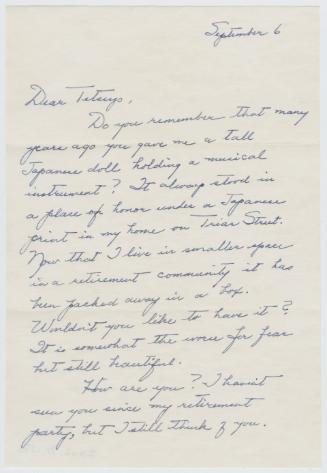 September 6
Dear Tetsuyo,
Do you remember that many
years ago you gave me a tall
Japanese doll holding a musical
instrument? It always stood in
a place of honor under a Japanese
print in my home on Briar Street.
Now that I live in smaller space
in a retirement community it has
been packed away in a box.
Wouldn't you like to have it?
It is somewhat the worse for fear
but still beautiful.
How are you? I haven't
seen you since my retirement
party, but I still think of you.